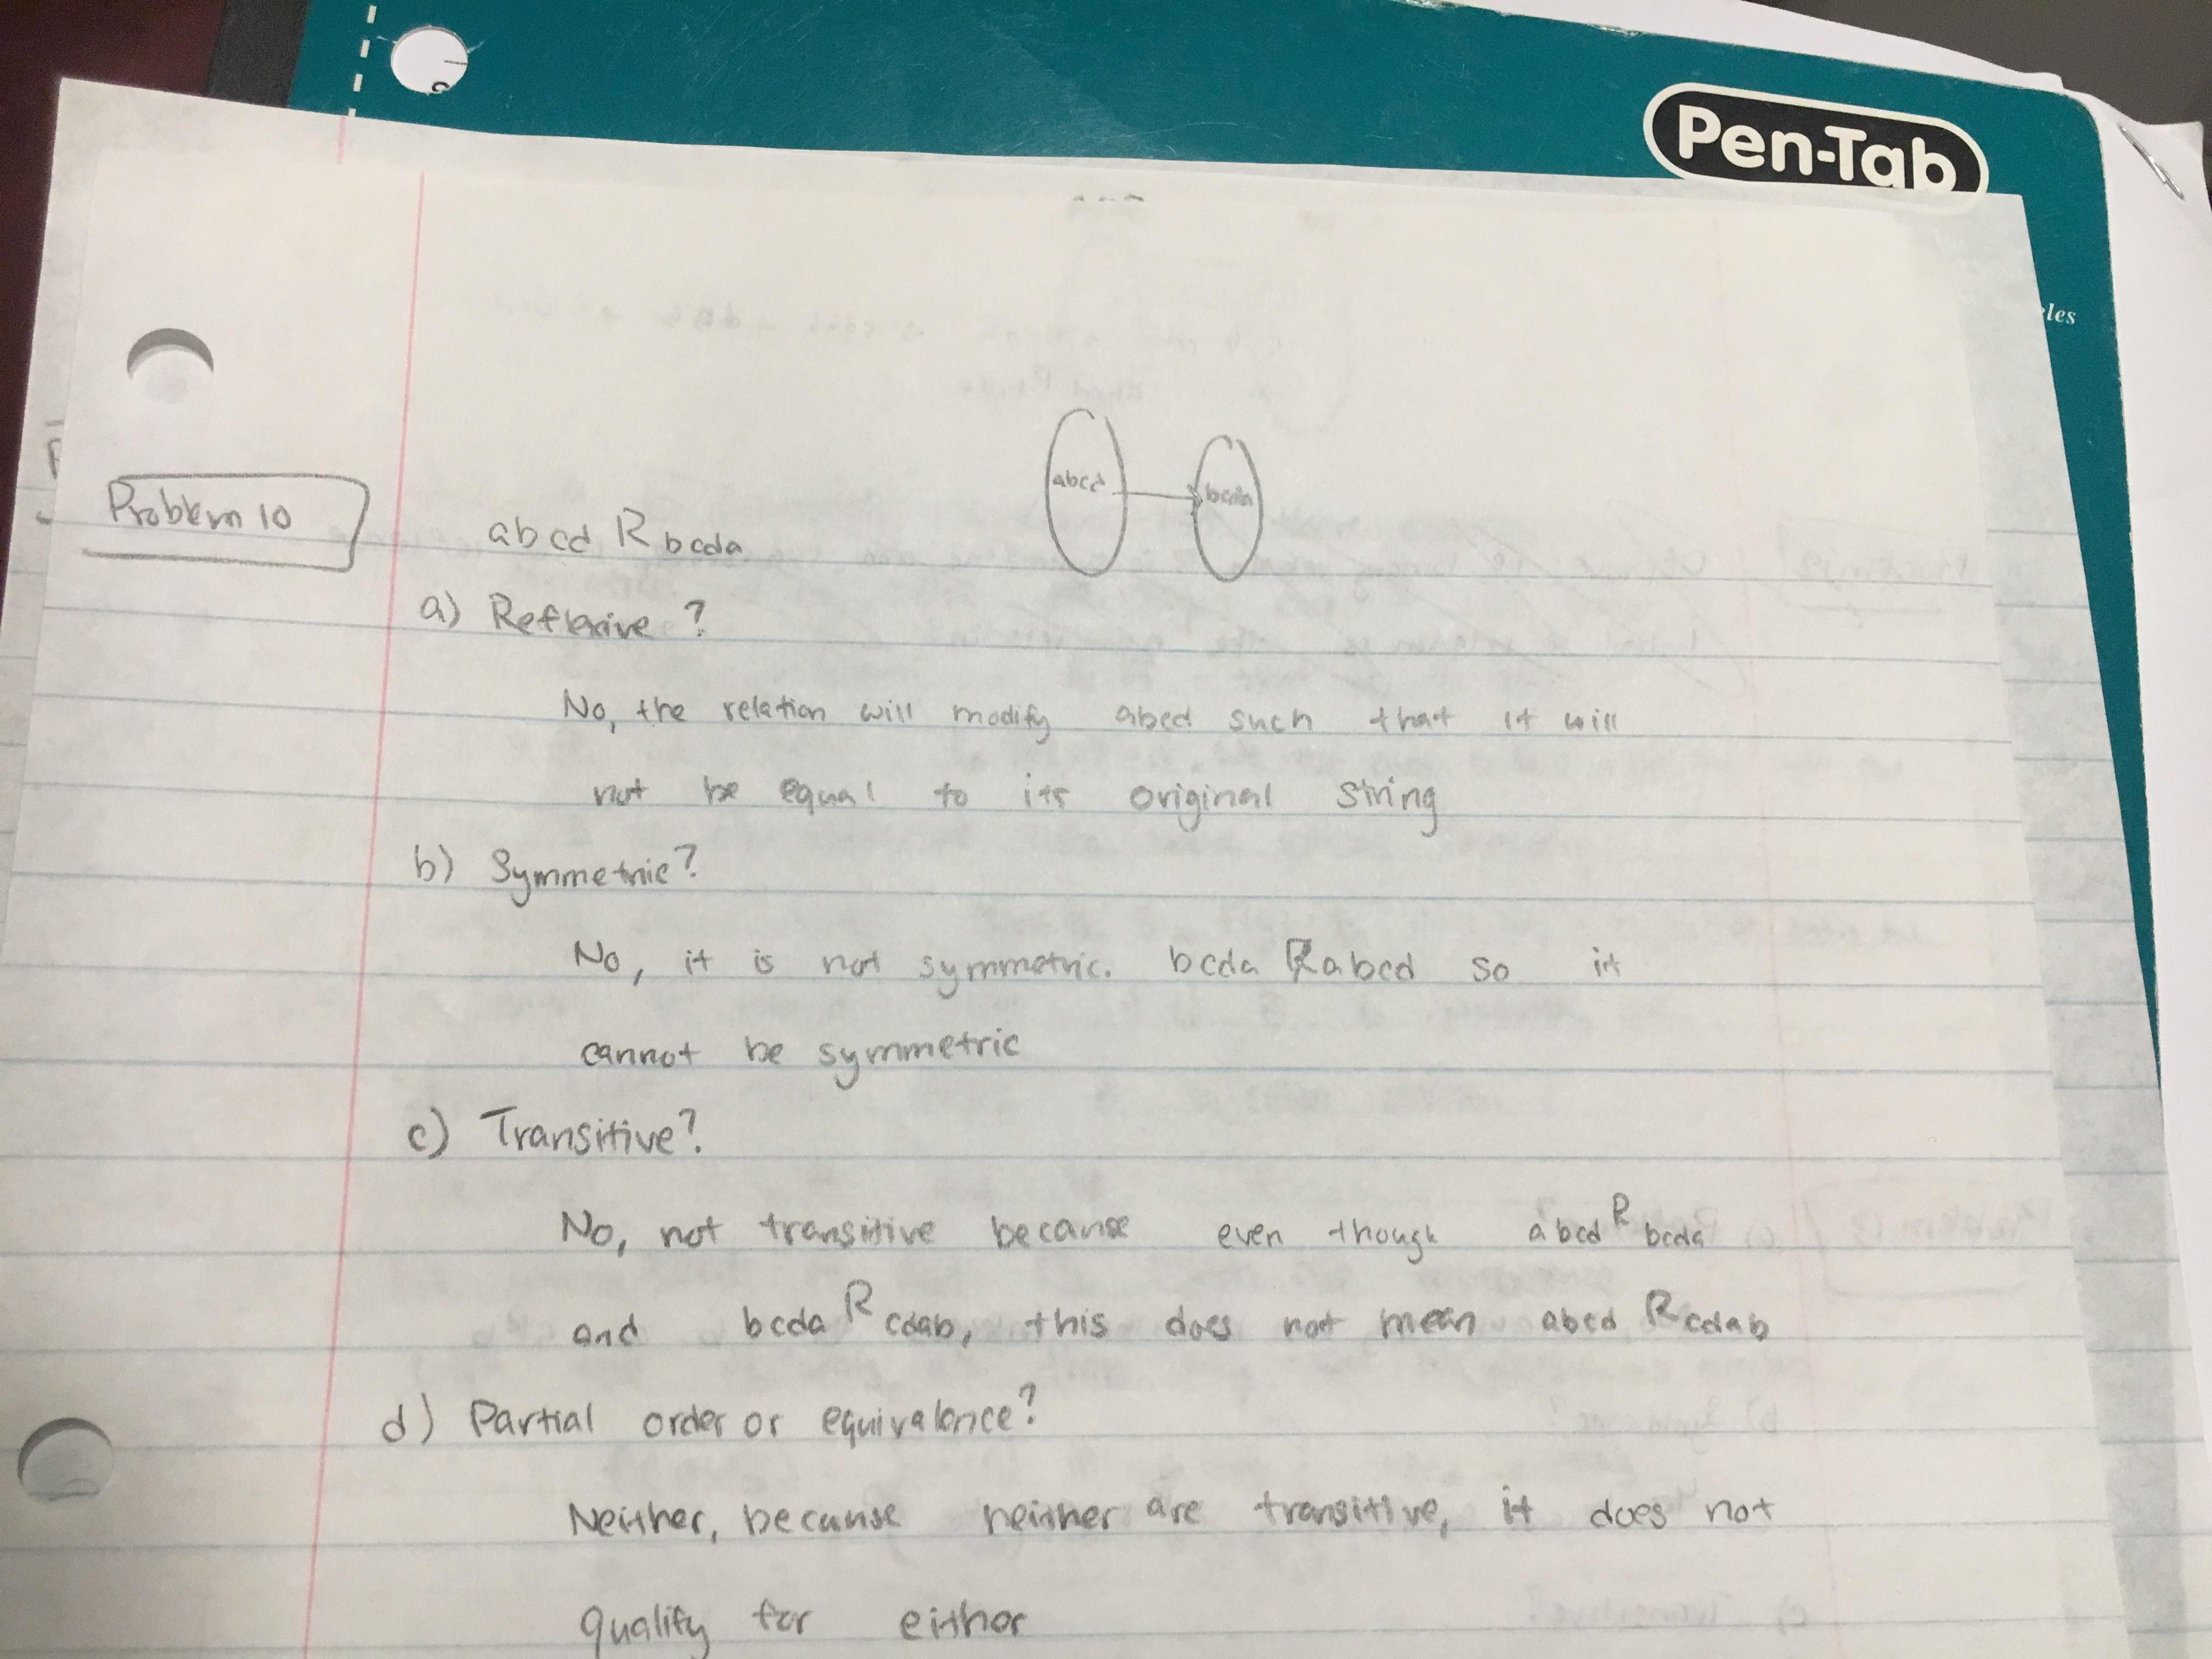 Pen-Tab
les
abcd
bcda
Problem 10
abcd R bcda
a) Reflexive?
No, the relation will modify abcd such that it will
not be equal to its original string
b) Symmetric?
No, it is not symmetric. bcda R̸ abcd so it
cannot be symmetric
c) Transitive?
No, not transitive because even though abcd R bcda
and bcda R cdab, this does not mean abcd R cdab
d) Partial order or equivalence?
Neither, because neither are transitive, it does not
qualify for either